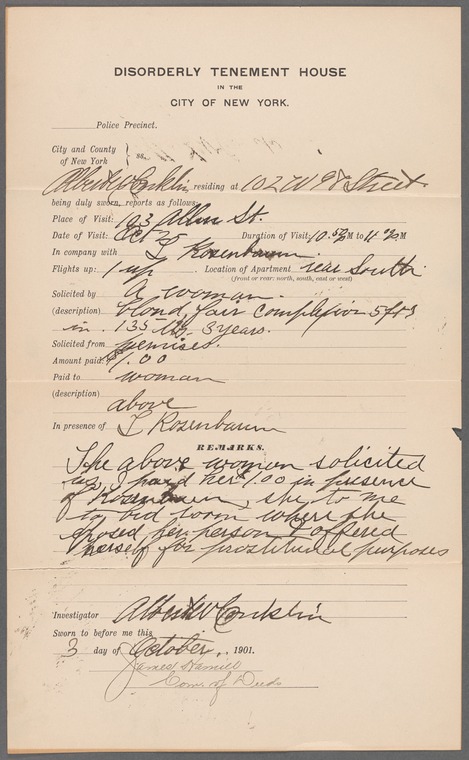 DISORDERLY TENEMENT HOUSE
IN THE
CITY OF NEW YORK.
Police Precinct.
City and County
of New York } ss.
Albert W Conklin residing at 102 W 98 Street
being duly sworn, reports as follows:
Place of Visit: 103 Allen St.
Date of Visit: Oct Duration of Visit: 10.50 M to 11 M
In company with L Rosenbaum.
Flights up: 1 up Location of Apartment rear South
(front or rear: north, south, east or west)
Solicited by A woman.
(description) blond, fair Complexion 5 ft 3
in. 135 lb. 3 years.
Solicited from premises.
Amount paid: $1.00
Paid to woman
(description) above
In presence of L Rosenbaum
REMARKS.
The above woman solicited
us, I paid her $1.00 in presence
of Rosenbaum, she, to me
to bed room where she
exposed her person & offered
herself for prostitutual purposes
Investigator Albert W Conklin
Sworn to before me this
3 day of October, 1901.
James Hamill
Com. of Deeds